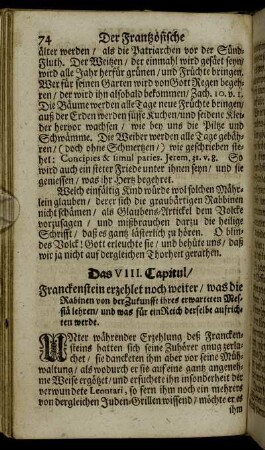 74 Der Frantzösische
älter werden / als die Patriarchen vor der Sünd-
Fluth. Der Weitzen / der einmahl wird gesäet seyn /
wird alle Jahr herfür grünen / und Früchte bringen.
Wer für seinen Garten wird von Gott Regen begeh-
ren / der wird ihn alsobald bekommen / Zach. 10. v. 1.
Die Bäume werden alle Tage neue Früchte bringen /
auß der Erden werden süsse Kuchen / und seidene Klei-
der hervor wachsen / wie bey uns die Piltze und
Schwämme. Die Weiber werden alle Tage gebäh-
ren / (doch ohne Schmertzen /) wie geschrieben ste-
het: Concipies & timul paries. Jerem. 31. v. 8. So
wird auch ein steter Friede unter ihnen seyn / und sie
geniessen / was ihr Hertz begehret.
Welch einfältig Kind würde wol solchen Mähr-
lein glauben / derer sich die graubärtigen Rabbinen
nicht schämen / als Glaubens-Artickel dem Volcke
vorzusagen / und mißbrauchen darzu die heilige
Schrifft / daß es gantz lästerlich zu hören. O blin-
des Volck! Gott erleuchte sie / und behüte uns / daß
wir ja nicht auf dergleichen Thorheit gerathen.
Das VIII. Capitul /
Franckenstein erzehlet noch weiter / was die
Rabinen von der Zukunfft ihres erwarteten Mes-
siä lehren / und was für ein Reich derselbe aufrich-
ten werde.
UNter währender Erzehlung deß Francken-
steins hatten sich seine Zuhörer gnug zerla-
chet / sie dancketen ihm aber vor seine Müh-
waltung / als wodurch er sie auf eine gantz angeneh-
me Weise ergötzet / und ersuchte ihn insonderheit der
verwundete Leontari, so fern ihm noch ein mehrers
von dergleichen Juden-Grillen wissend / möchte er es
ihm